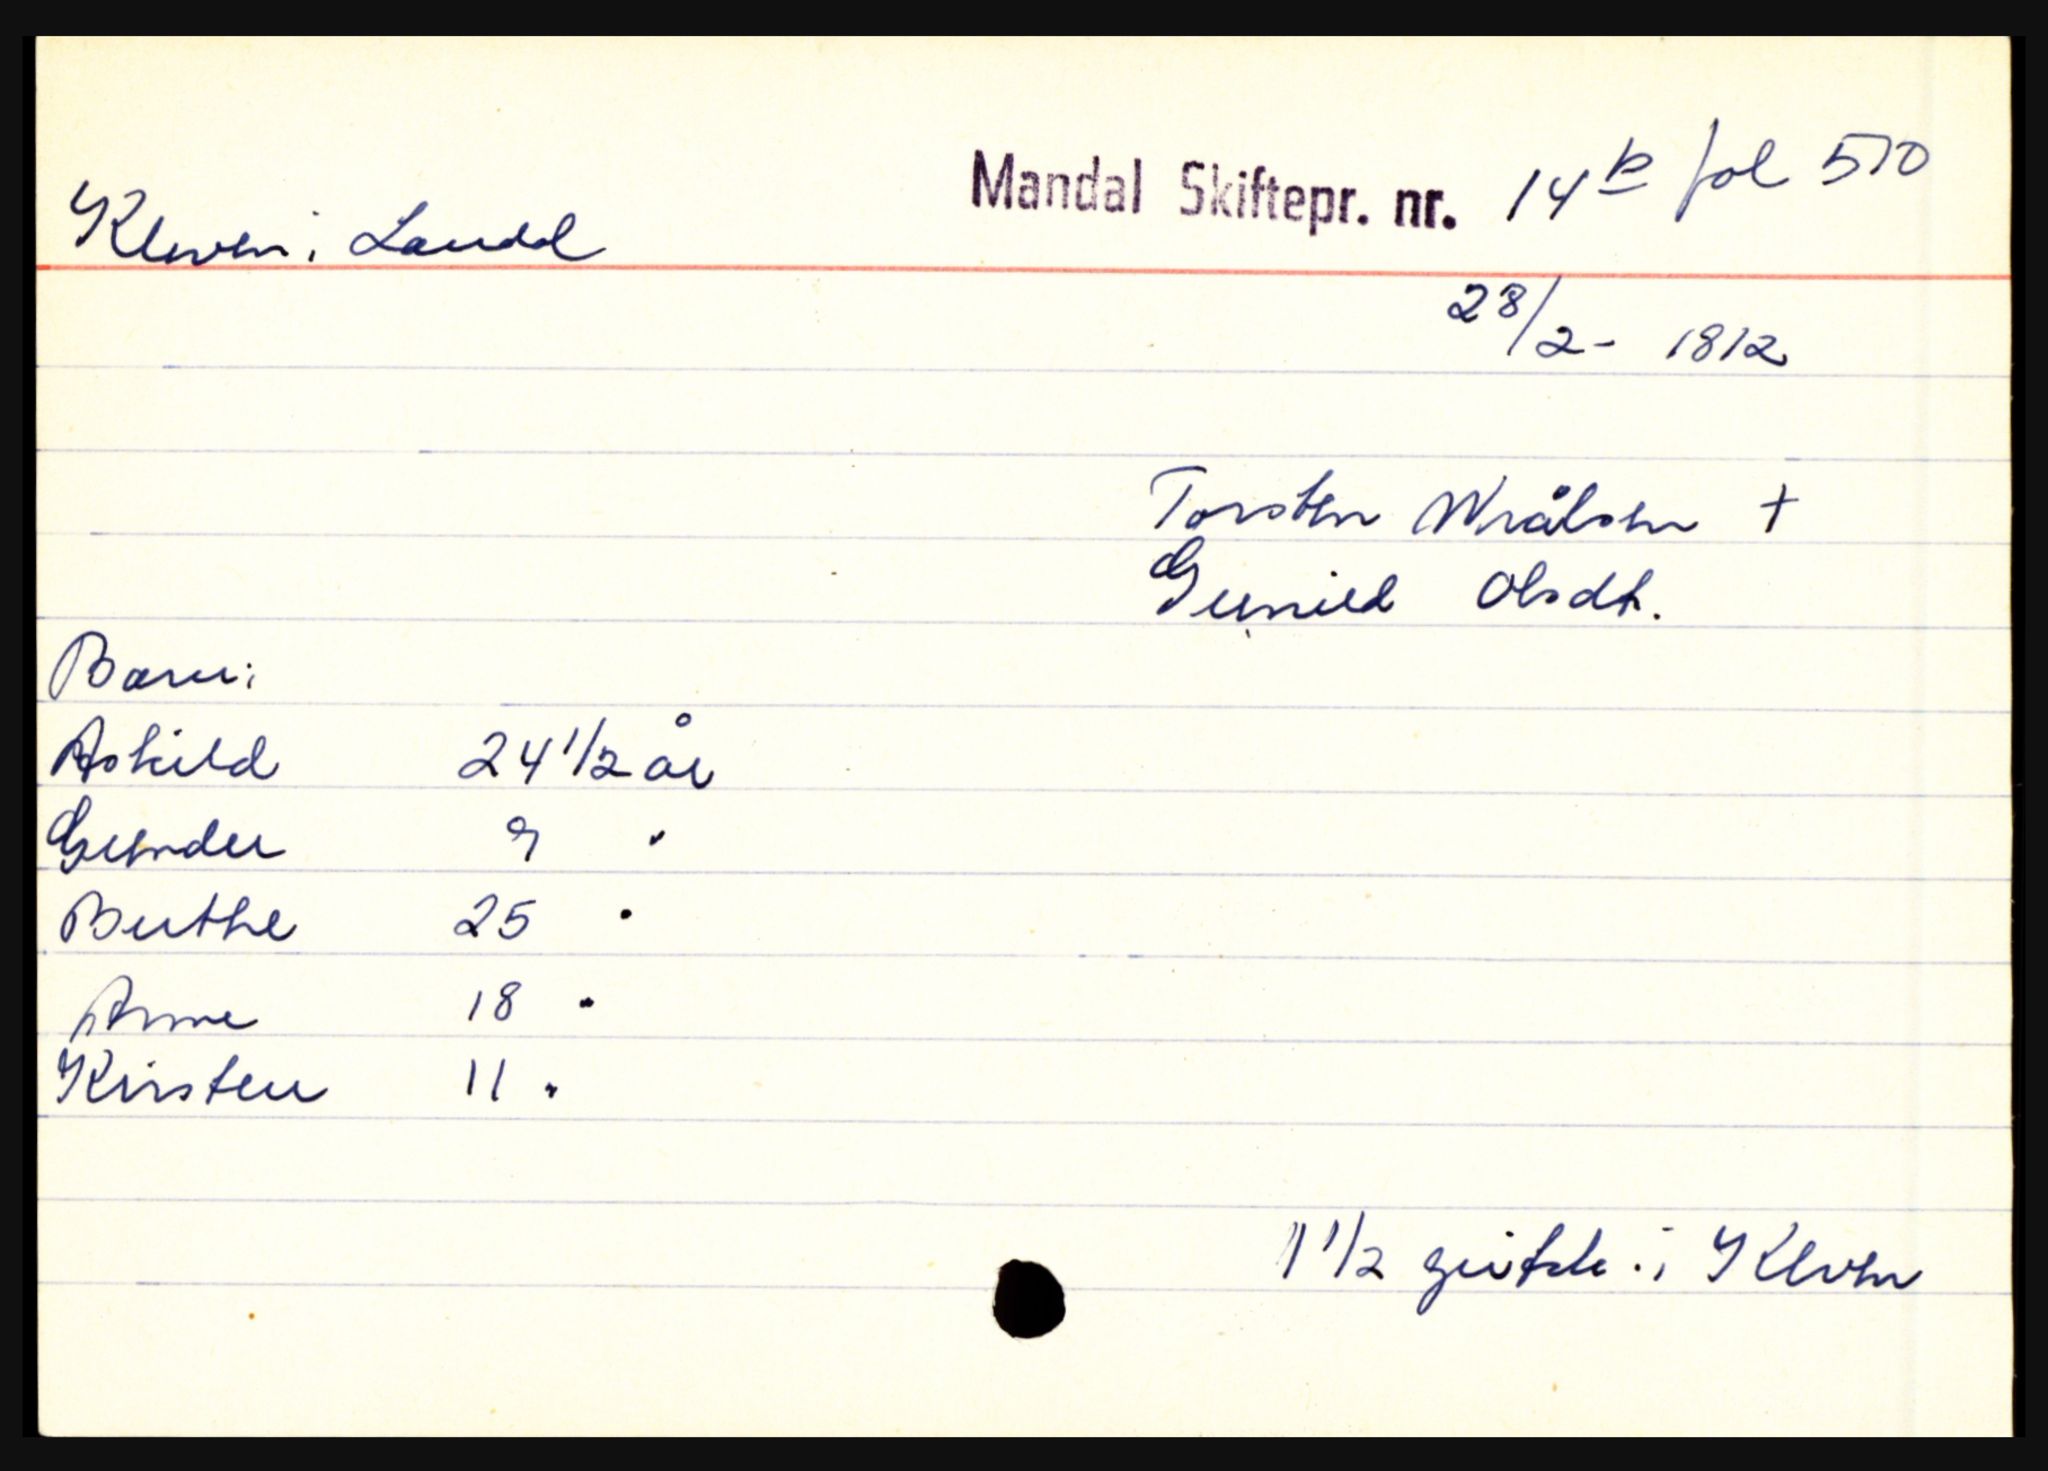 Mandal Skiftepr. nr. 14 b fol 510
Kleven i Laudal
28/2 - 1812
Torsten Wrålsen +
Gunild Olsdt.
Barn:
Askild 24 1/2 år
Gunder 9 "
Berthe 25 "
Anne 18 "
Kirsten 11 "
1 1/2 i Kleven